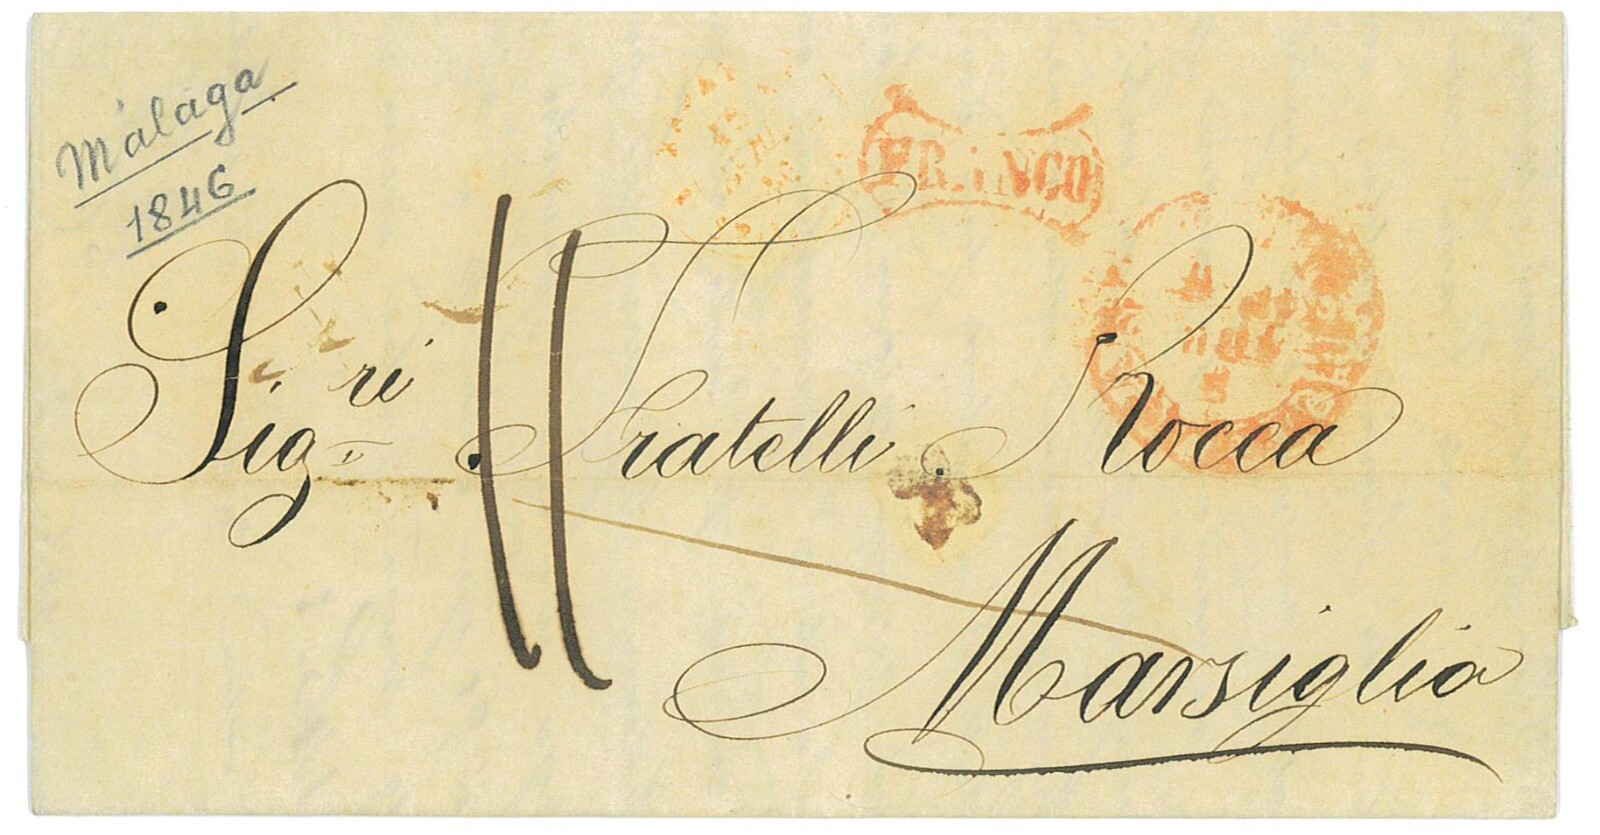 Málaga
1846
FRANCO
Sig.ri Fratelli Rocca
Marsiglia